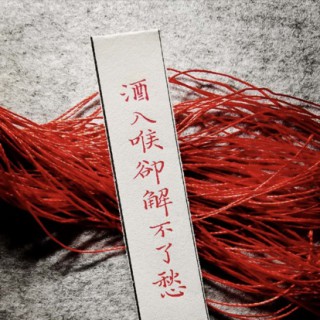 酒入喉卻解不了愁